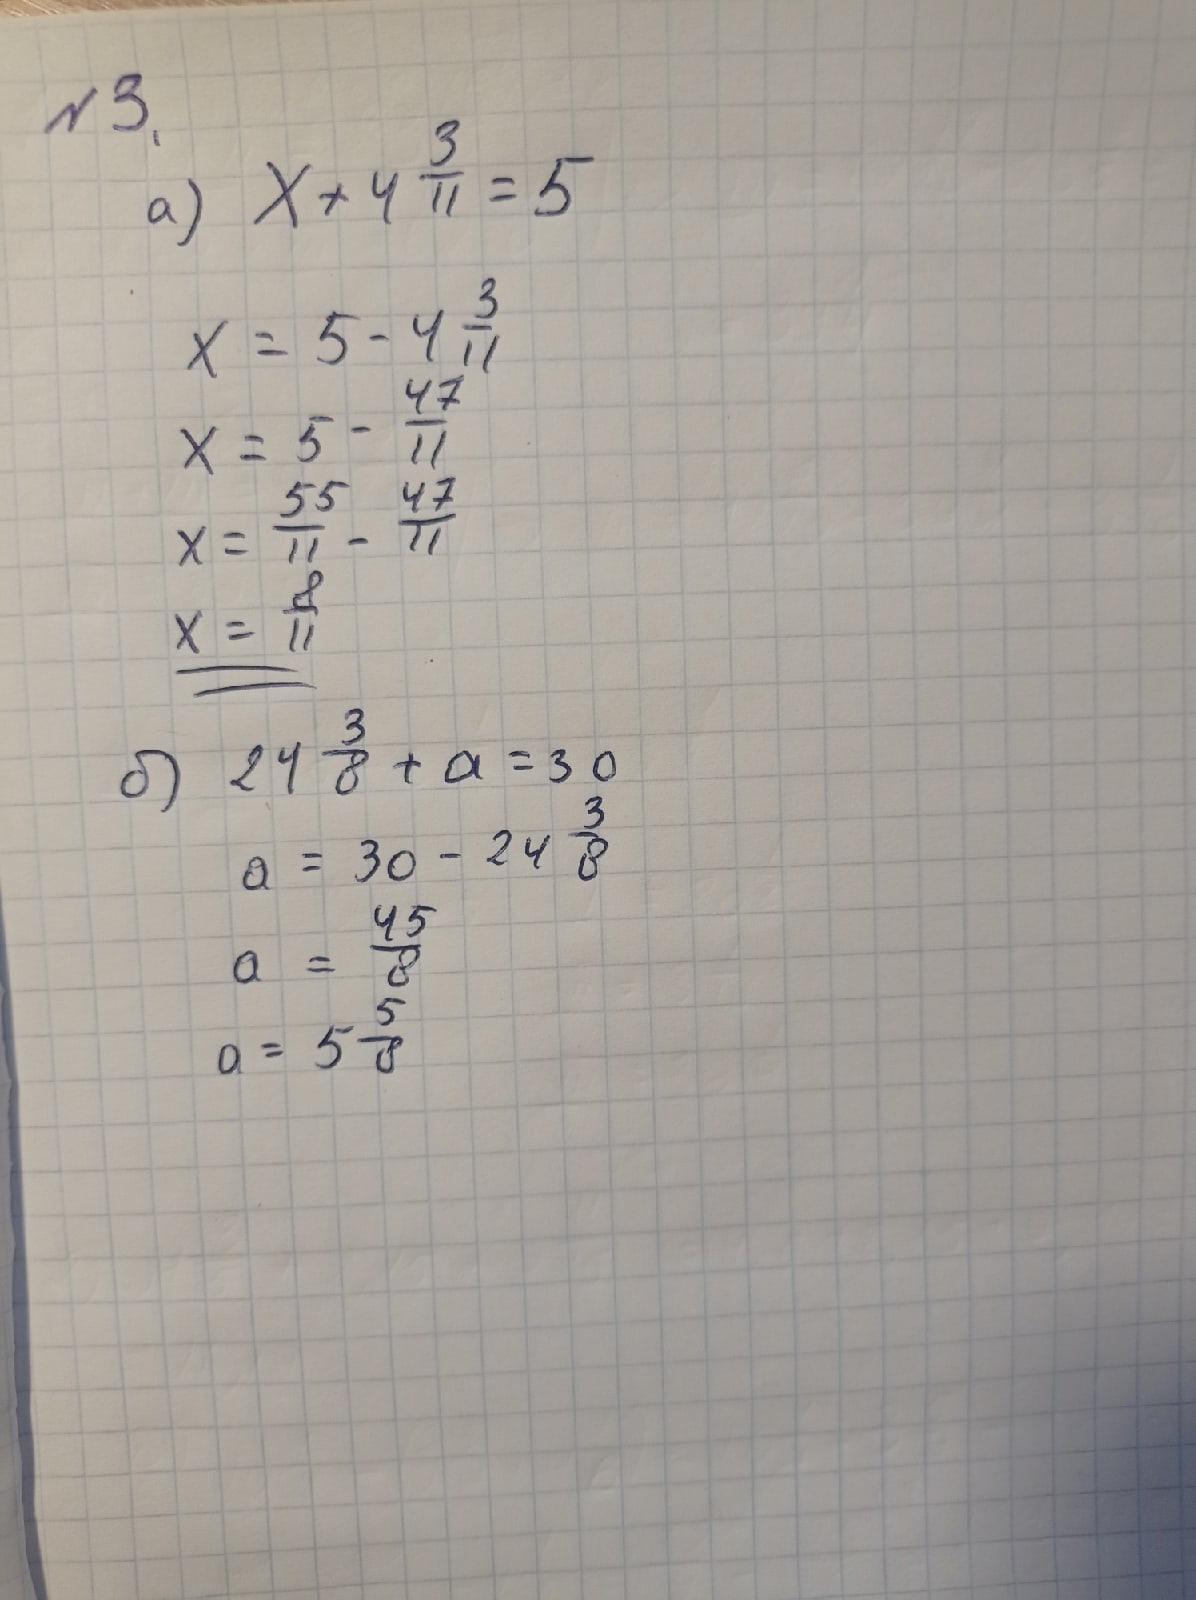 №3.
а) x + 4 3/11 = 5
x = 5 - 4 3/11
x = 5 - 47/11
x = 55/11 - 47/11
x = 8/11
б) 24 3/8 + a = 30
a = 30 - 24 3/8
a = 45/8
a = 5 5/8